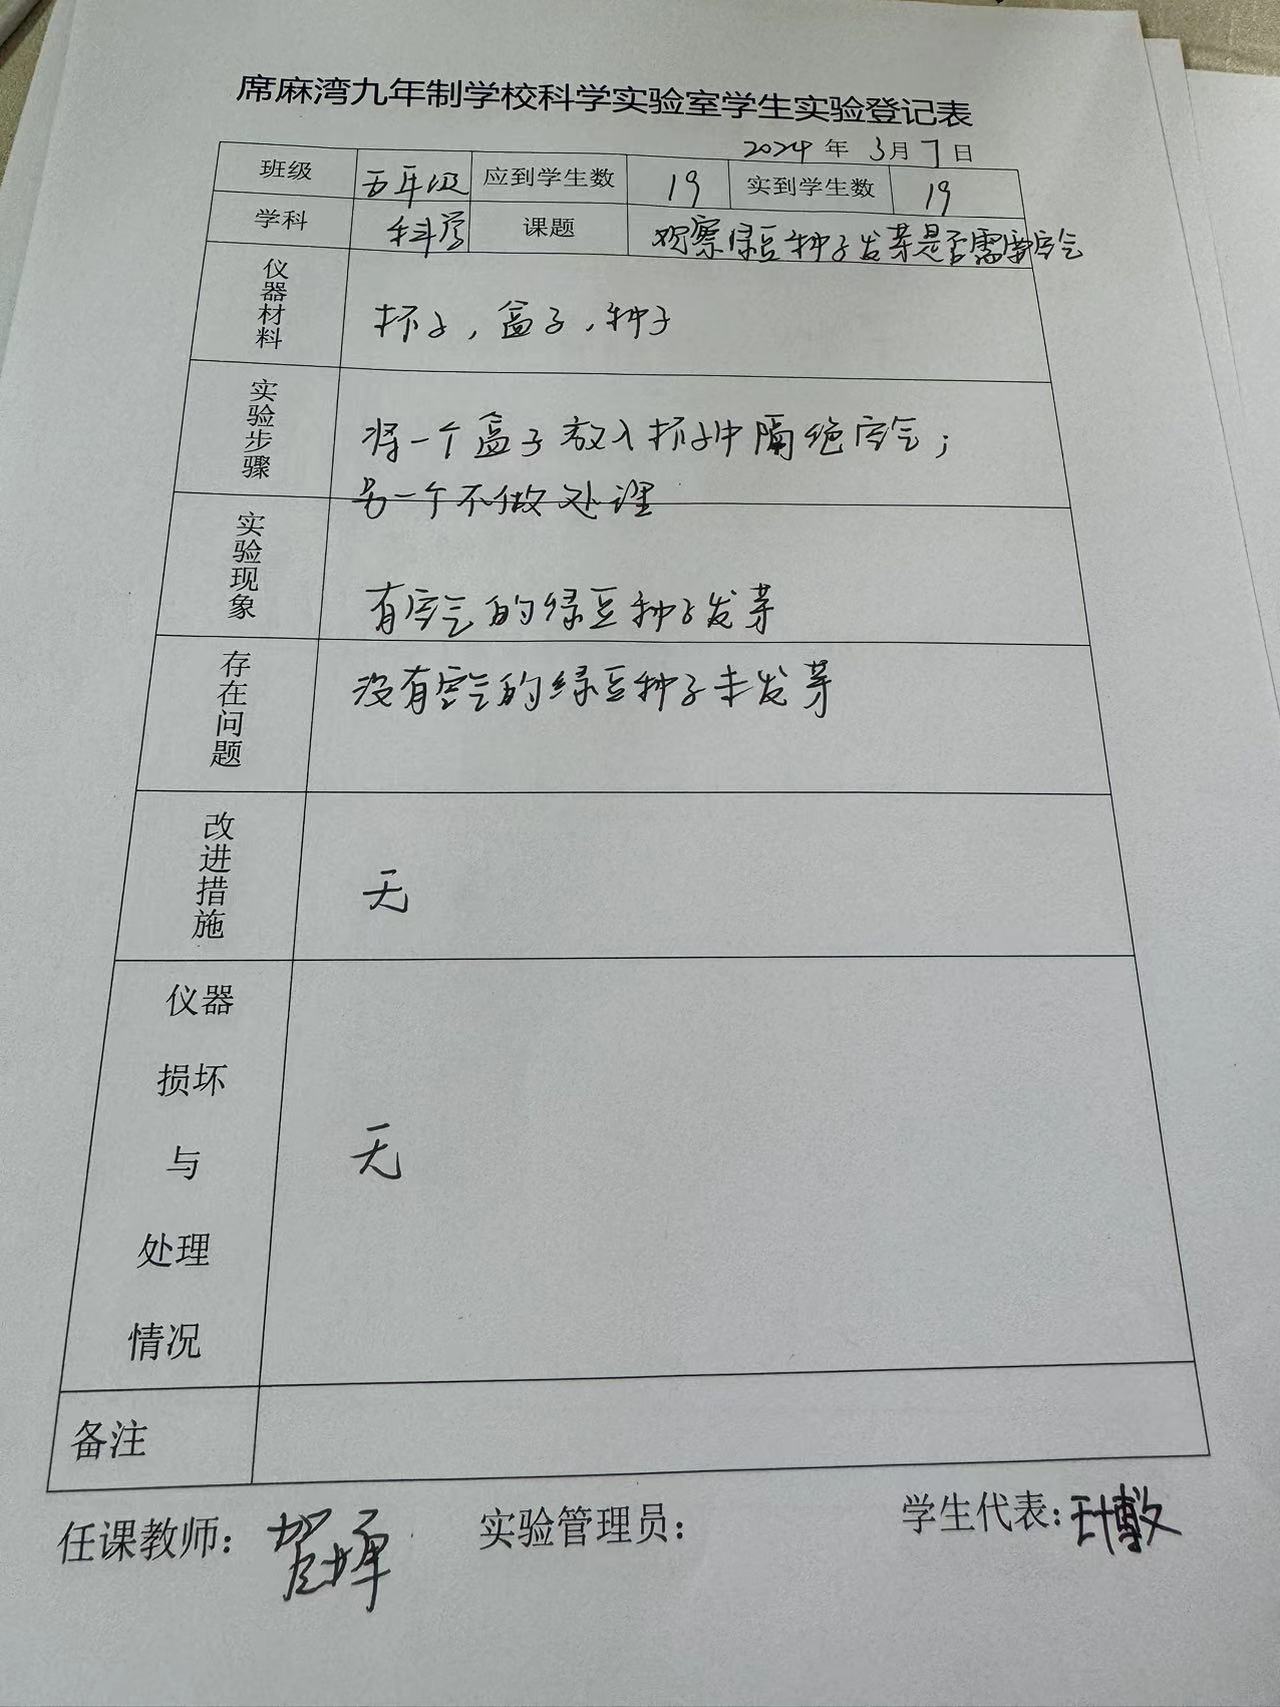 席麻湾九年制学校科学实验室学生实验登记表
2024 年 3月 7 日
班级 五年级 应到学生数 19 实到学生数 19
学科 科学 课题 观察绿豆种子发芽是否需要空气
仪器材料 杯子，盒子，种子
实验步骤 将一个盒子放入杯子中隔绝空气；
另一个不做处理
实验现象 有空气的绿豆种子发芽
存在问题 没有空气的绿豆种子未发芽
改进措施 无
仪器
损坏
与 无
处理
情况
备注
任课教师： 实验管理员： 学生代表：